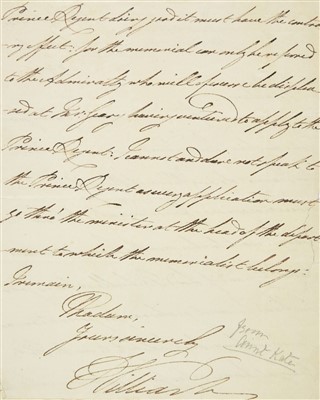 Prince Regent doing good it must have the contra-
ry effect: for the memorial can only be referred
to the Admiralty who will of course be displea-
sed at having ventured to apply to the
Prince Regent: I cannot and dare not speak to
the Prince Regent as every application must
go thro' the minister at the head of the depart-
ment to which the memorialist belongs:
I remain,
Madam,
Yours sincerely
William
from
Aunt Kate